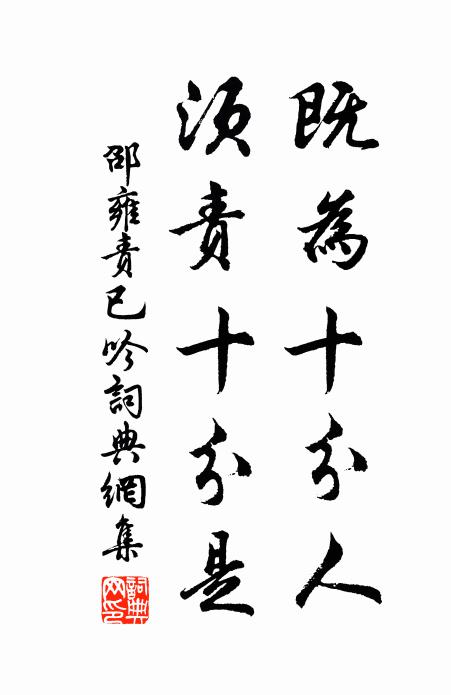 既為十分人
須責十分是
邵雍責己吟詞典網集
詞典網印